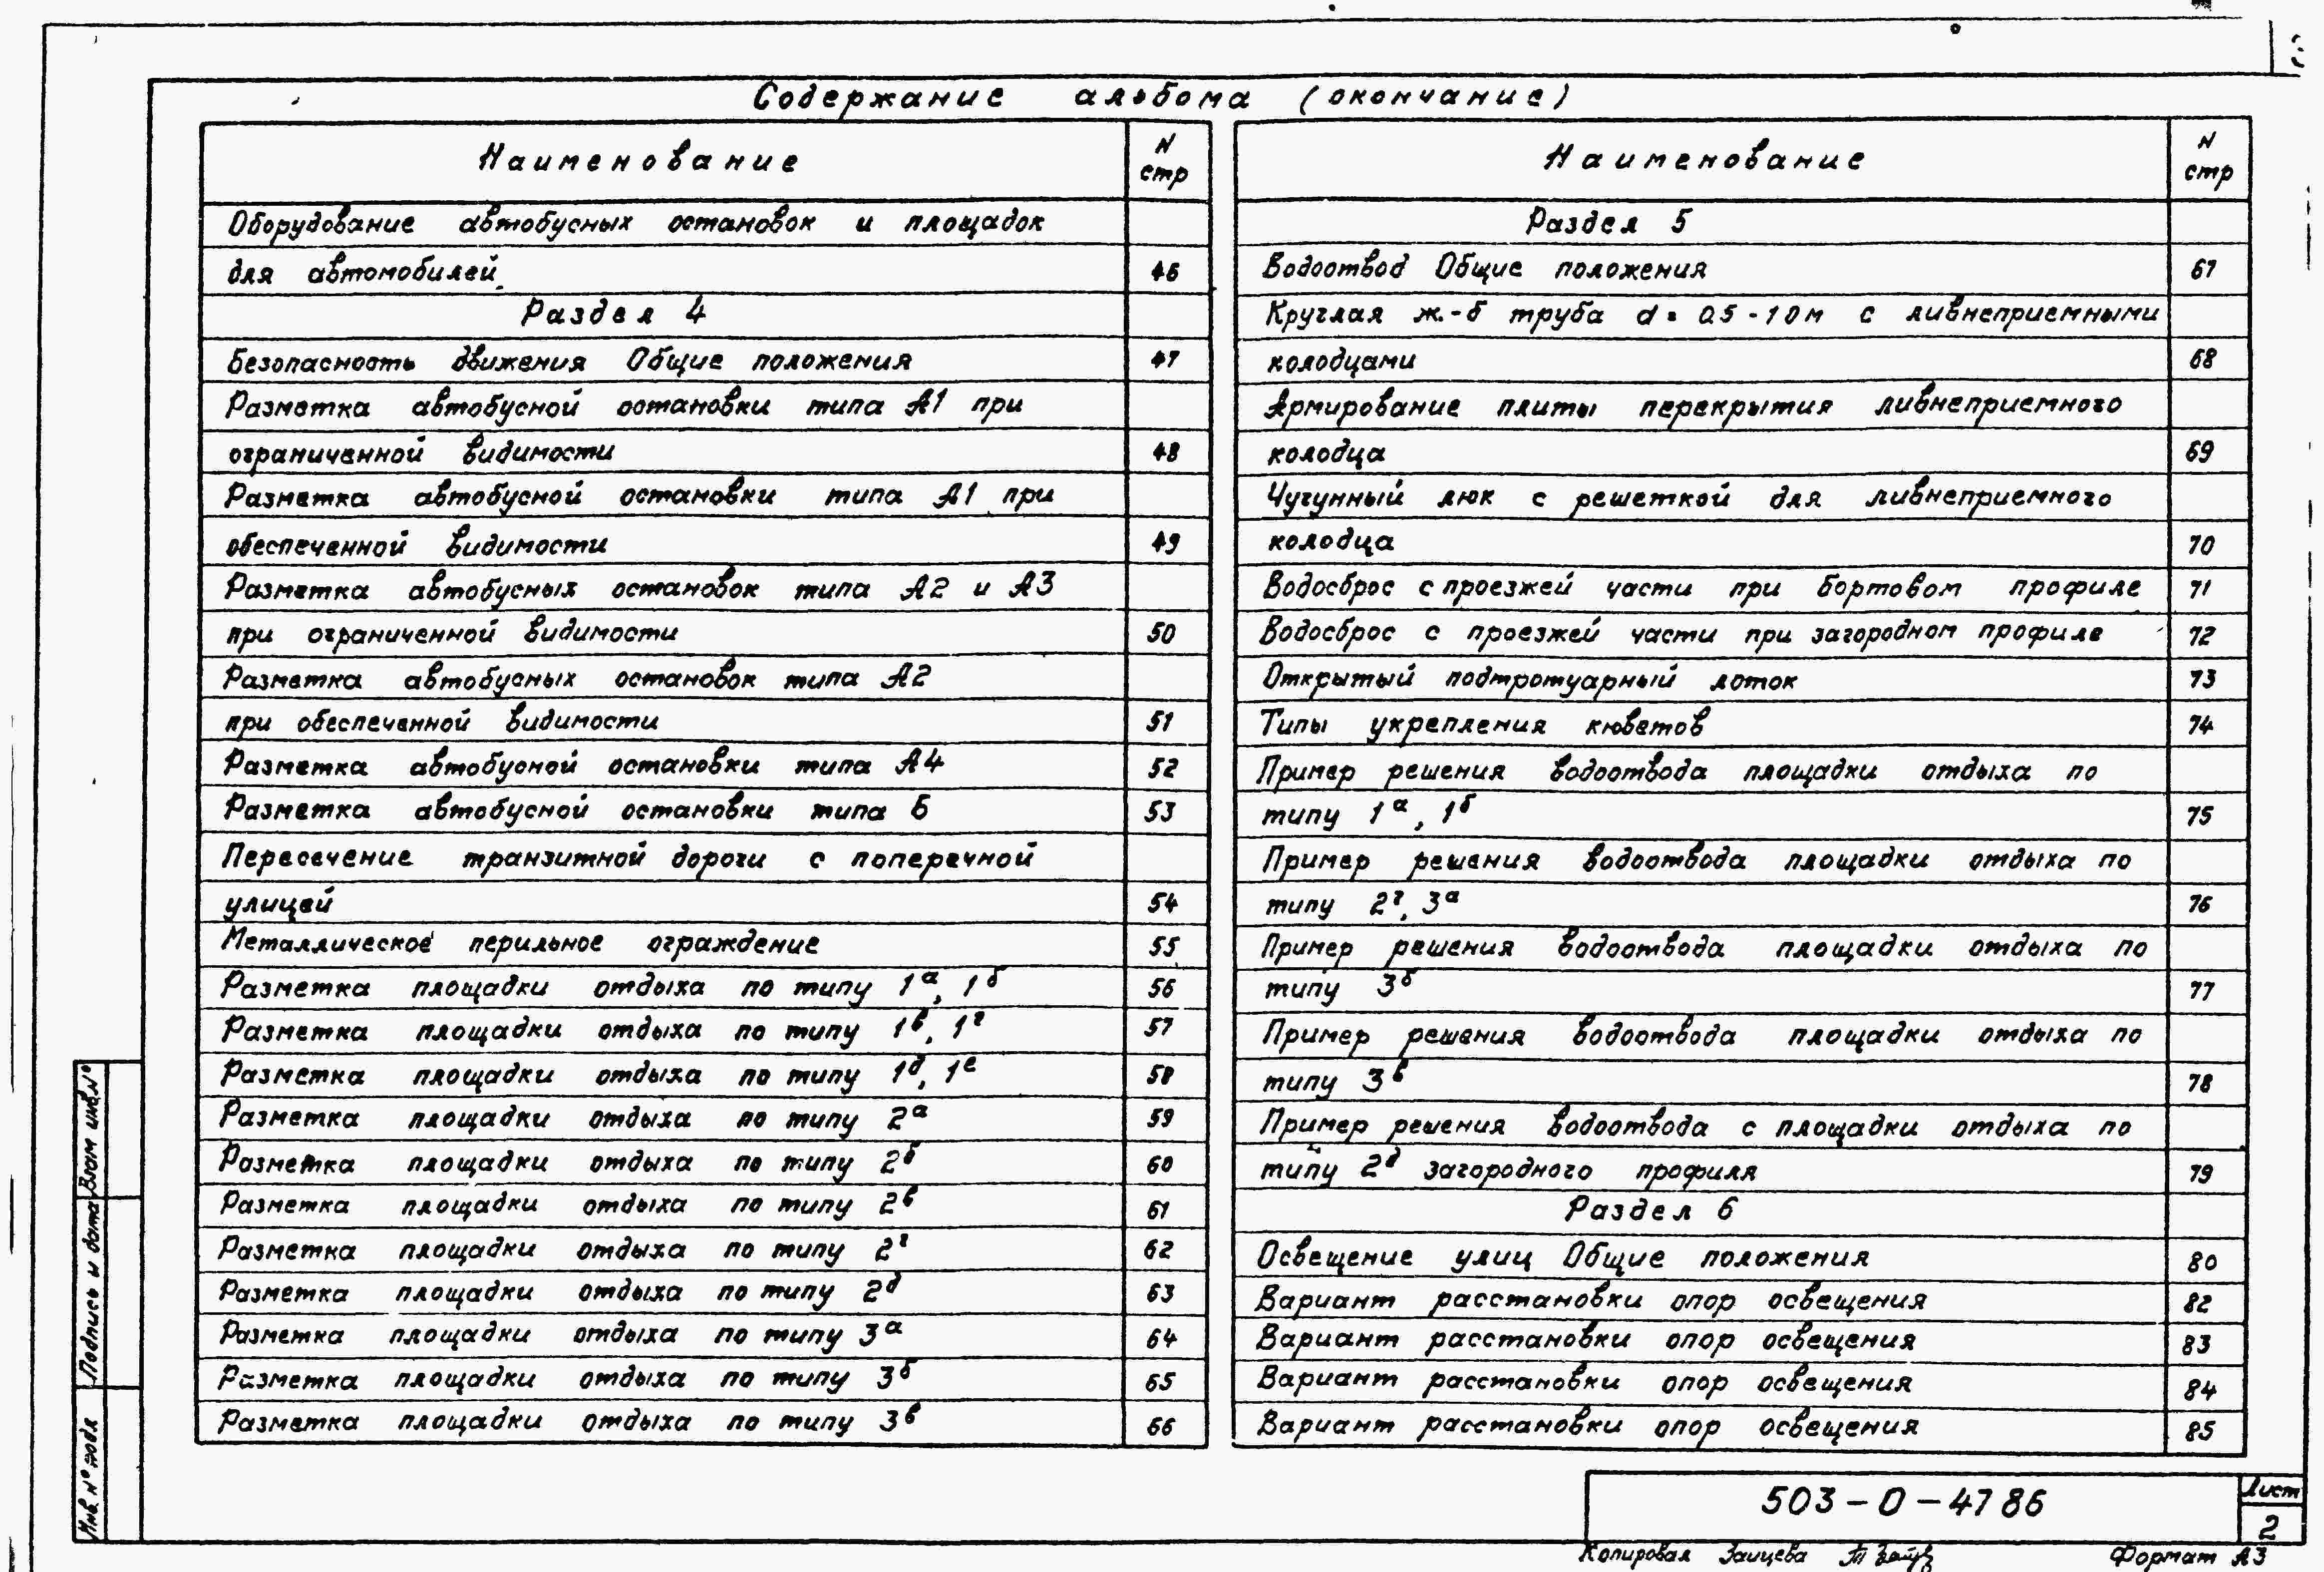 Содержание альбома (окончание)
Наименование N стр
Оборудование автобусных остановок и площадок
для автомобилей 46
Раздел 4
Безопасность движения Общие положения 47
Разметка автобусной остановки типа А1 при
ограниченной видимости 48
Разметка автобусной остановки типа А1 при
обеспеченной видимости 49
Разметка автобусных остановок типа А2 и А3
при ограниченной видимости 50
Разметка автобусных остановок типа А2
при обеспеченной видимости 51
Разметка автобусной остановки типа А4 52
Разметка автобусной остановки типа Б 53
Пересечение транзитной дороги с поперечной
улицей 54
Металлическое перильное ограждение 55
Разметка площадки отдыха по типу 1ᵃ, 1ᵇ 56
Разметка площадки отдыха по типу 1в, 1г 57
Разметка площадки отдыха по типу 1д, 1е 58
Разметка площадки отдыха по типу 2а 59
Разметка площадки отдыха по типу 2б 60
Разметка площадки отдыха по типу 2в 61
Разметка площадки отдыха по типу 2г 62
Разметка площадки отдыха по типу 2д 63
Разметка площадки отдыха по типу 3а 64
Разметка площадки отдыха по типу 3б 65
Разметка площадки отдыха по типу 3в 66
Наименование N стр
Раздел 5
Водоотвод Общие положения 67
Круглая ж.-б труба d = 0.5 - 1 0 м с ливнеприемными
колодцами 68
Армирование плиты перекрытия ливнеприемного
колодца 69
Чугунный люк с решеткой для ливнеприемного
колодца 70
Водосброс с проезжей части при бортовом профиле 71
Водосброс с проезжей части при загородном профиле 72
Открытый подтротуарный лоток 73
Типы укрепления кюветов 74
Пример решения водоотвода площадки отдыха по
типу 1а, 1б 75
Пример решения водоотвода площадки отдыха по
типу 2г, 3а 76
Пример решения водоотвода площадки отдыха по
типу 3б 77
Пример решения водоотвода площадки отдыха по
типу 3в 78
Пример решения водоотвода с площадки отдыха по
типу 2д загородного профиля 79
Раздел 6
Освещение улиц Общие положения 80
Вариант расстановки опор освещения 82
Вариант расстановки опор освещения 83
Вариант расстановки опор освещения 84
Вариант расстановки опор освещения 85
Взам инв.№
Подпись и дата
Инв. № подл
503-0-47 86
Лист
2
Копировал Зайцева
Формат А3